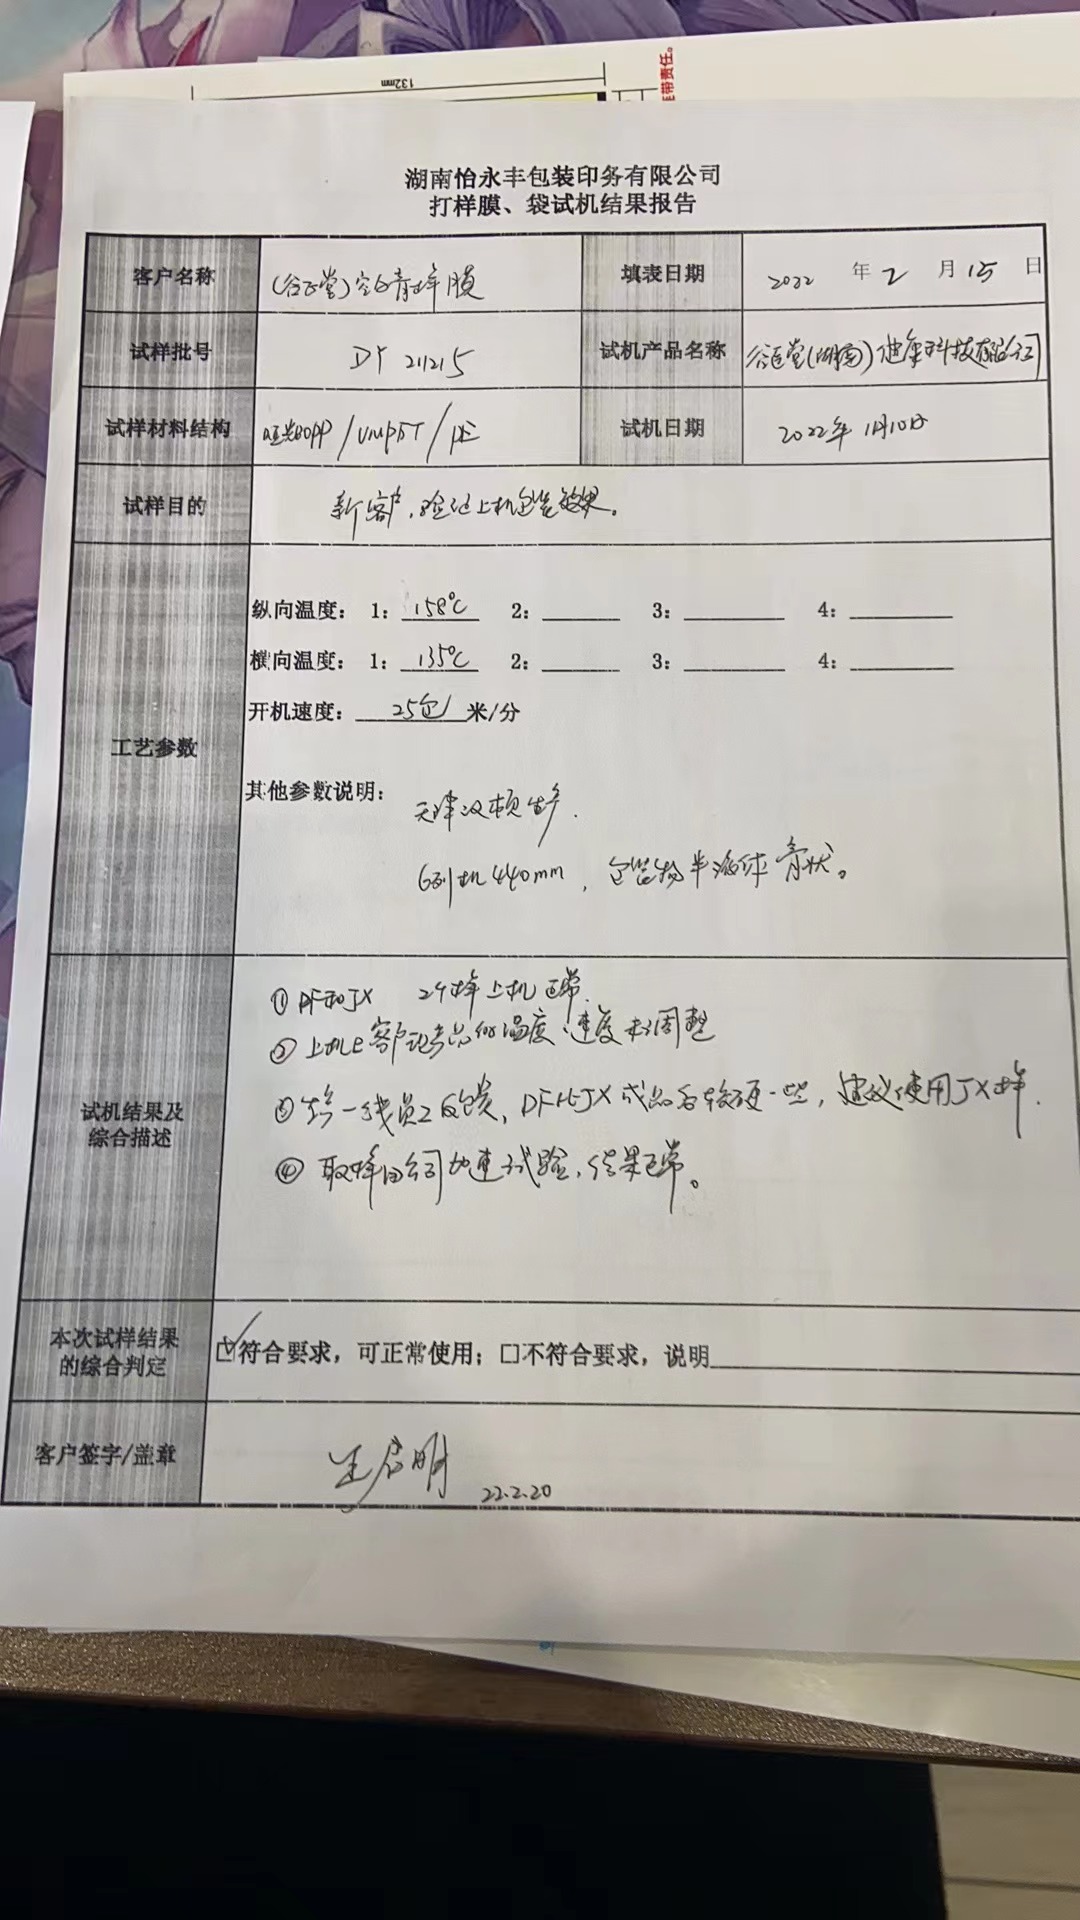 132mm
连带责任。
湖南怡永丰包装印务有限公司
打样膜、袋试机结果报告
客户名称 (谷医堂)空白青样膜 填表日期 2022 年 2 月 15 日
试样批号 DY 211215 试机产品名称 谷医堂(湖南)健康科技有限公司
试样材料结构 哑光BOPP/VMPET/PE 试机日期 2022年1月10日
试样目的 新客户,验证上机包装效果。
工艺参数
纵向温度: 1: 158℃ 2: 3: 4:
横向温度: 1: 135℃ 2: 3: 4:
开机速度: 25包/ 米/分
其他参数说明:
天津汉顿生产.
6列机440mm,包装物半液体膏状。
试机结果及
综合描述
① DF和JX 2个样上机正常.
② 上机在客户现产品的温度、速度未调整
③ 生产一线员工反馈,DF比JX成品后较硬一些,建议使用JX样.
④ 取样回公司加速试验,结果正常。
本次试样结果
的综合判定
符合要求,可正常使用;□不符合要求,说明
客户签字/盖章
22.2.20